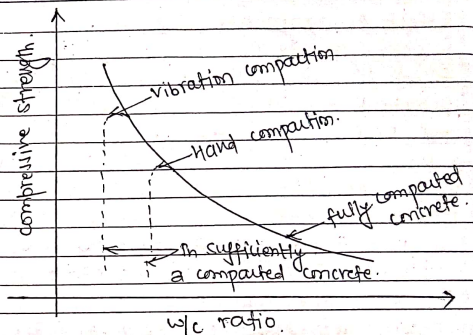 compressive strength.
vibration compaction
Hand compaction.
fully compacted
concrete.
In sufficiently
a compacted concrete.
w/c ratio.